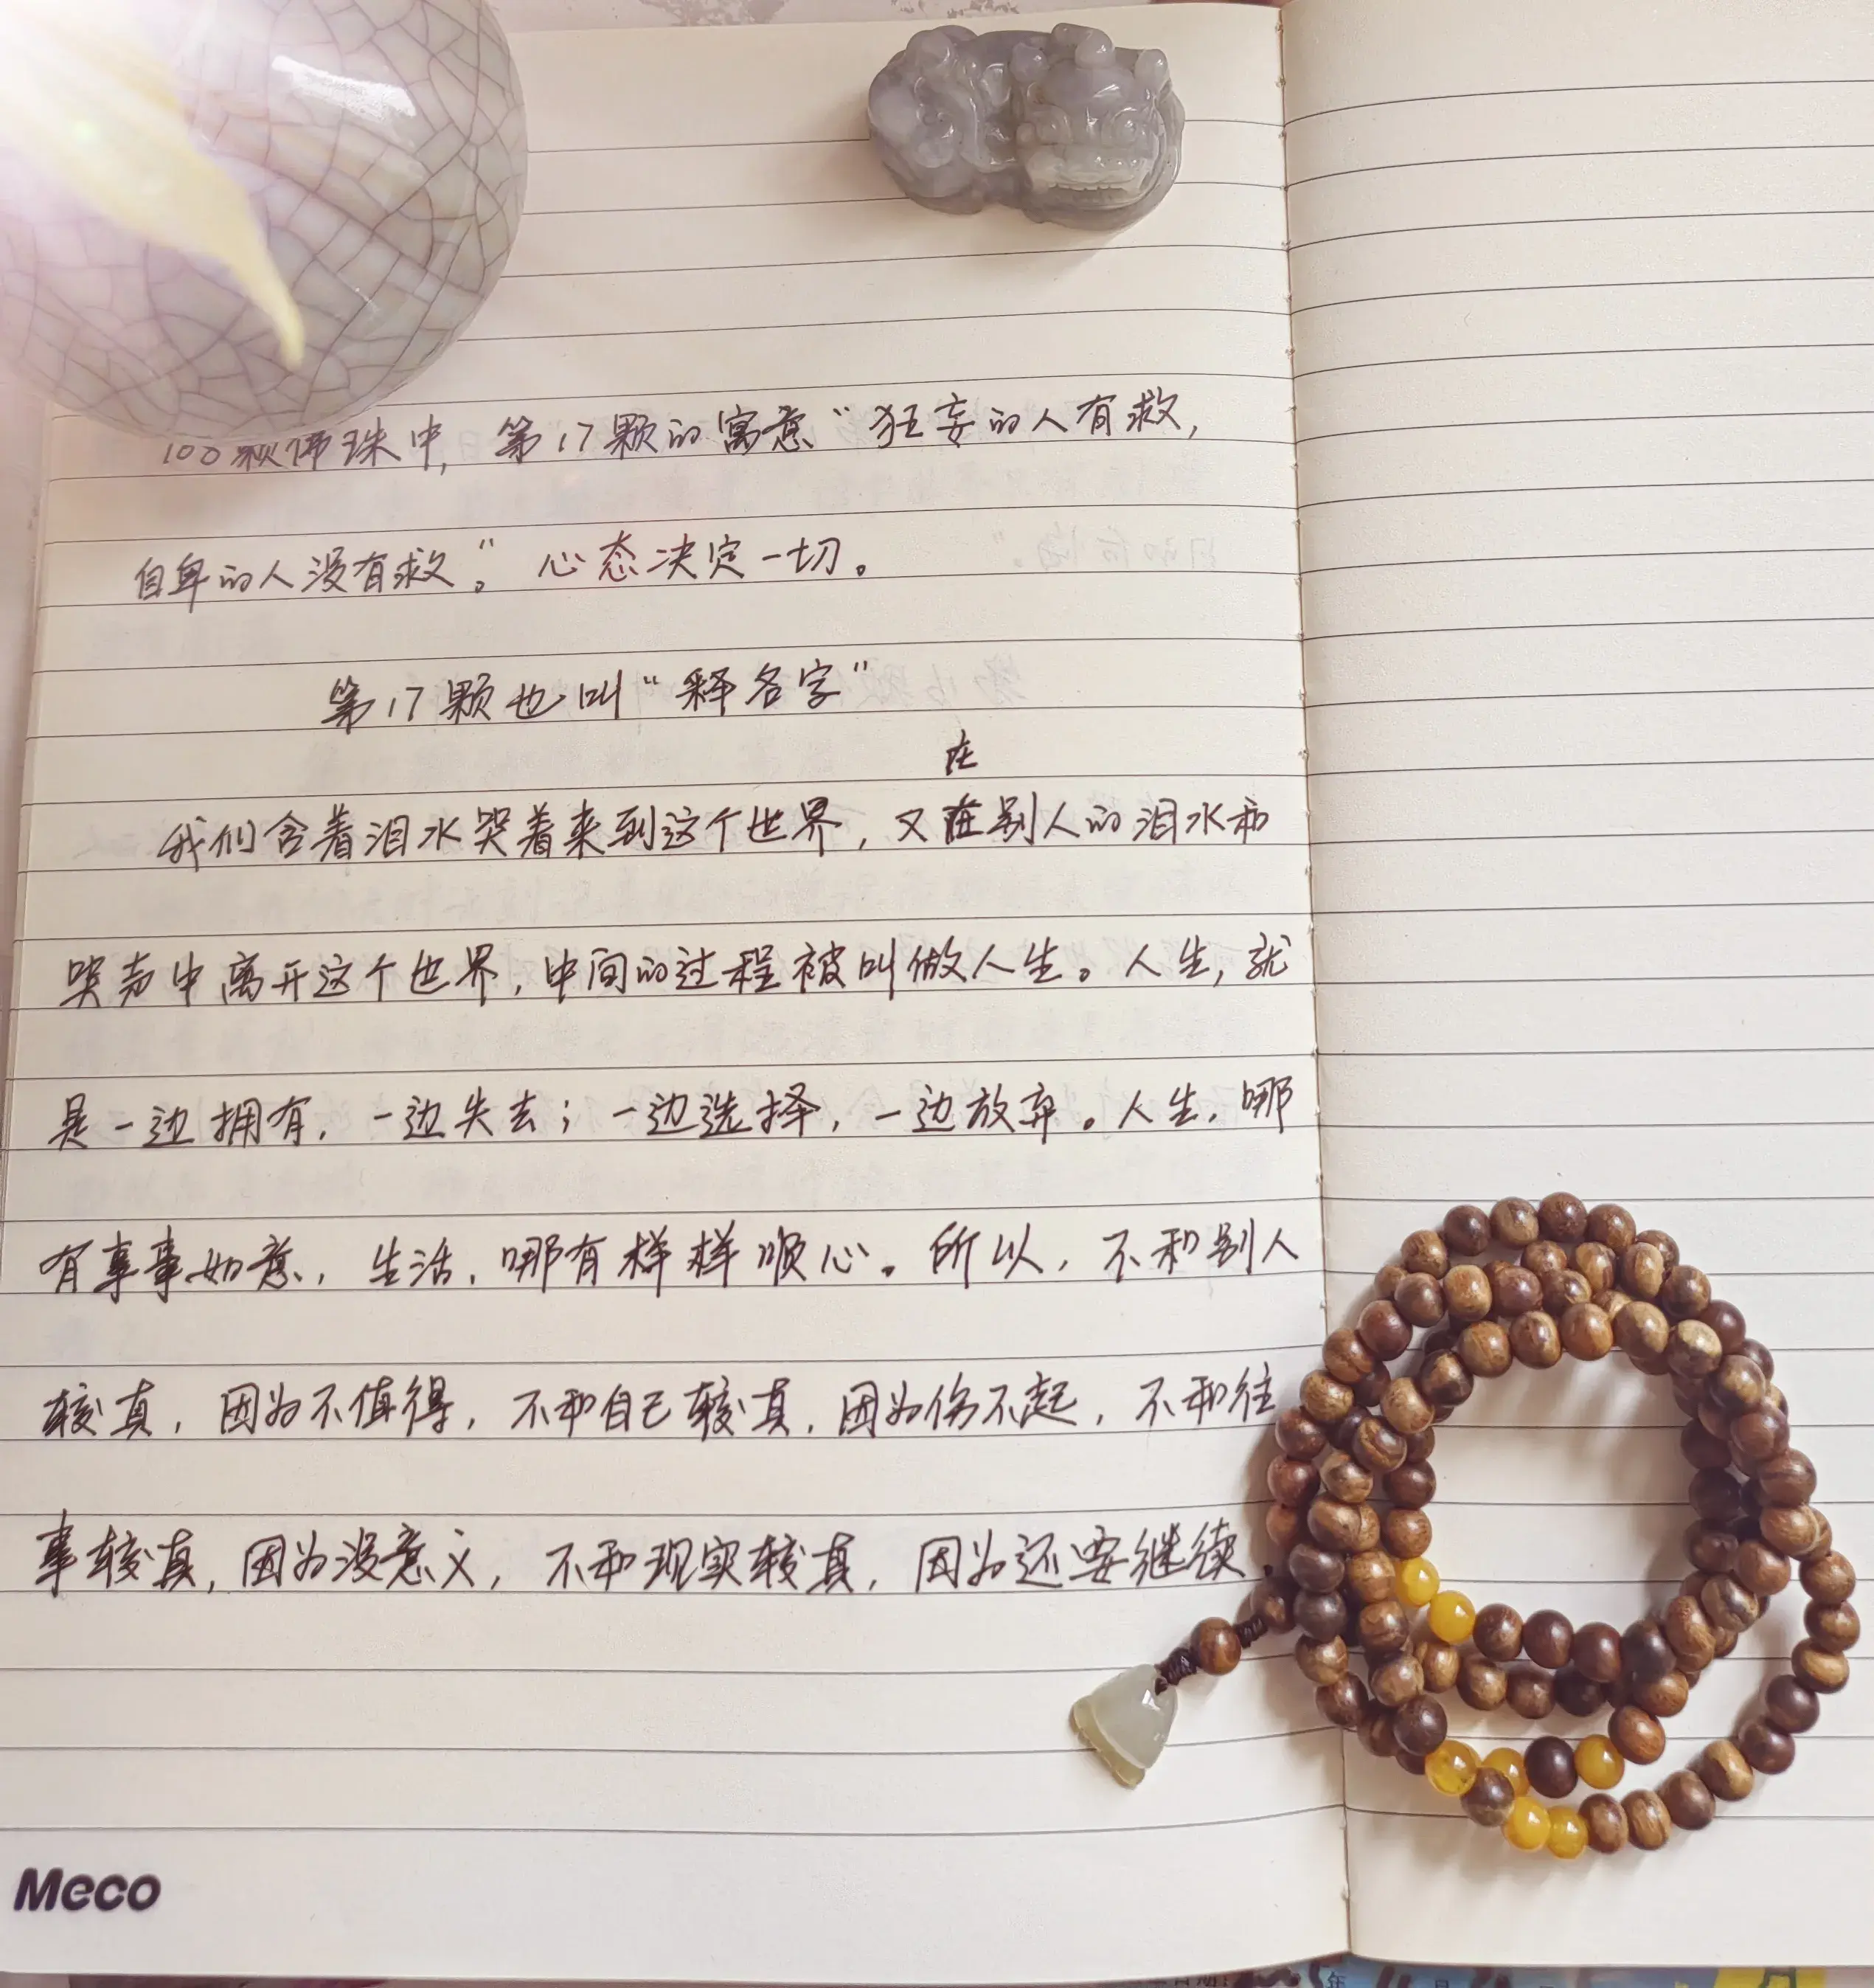 100颗佛珠中，第17颗的寓意“狂妄的人有救，
自卑的人没有救”。心态决定一切。
第17颗也叫“释各字”
在
我们含着泪水哭着来到这个世界，又在别人的泪水和
哭声中离开这个世界，中间的过程被叫做人生。人生，就
是一边拥有，一边失去；一边选择，一边放弃。人生，哪
有事事如意，生活，哪有样样顺心。所以，不和别人
较真，因为不值得，不和自己较真，因为伤不起，不和往
事较真，因为没意义，不和现实较真，因为还要继续
Meco
年 月